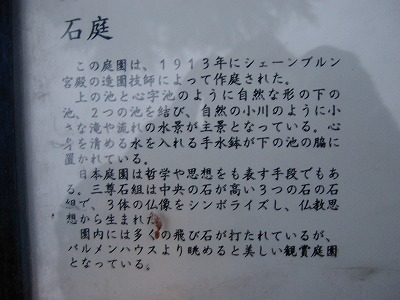 石庭
この庭園は、1913年にシェーンブルン
宮殿の造園技師によって作庭された。
上の池と心字池のように自然な形の下の
池、2つの池を結び、自然の小川のように小
さな滝や流れの水景が主景となっている。心
身を清める水を入れる手水鉢が下の池の脇に
置かれている。
日本庭園は哲学や思想をも表す手段でもあ
る。三尊石組は中央の石が高い3つの石の石
組で、3体の仏像をシンボライズし、仏教思
想から生まれた。
園内には多くの飛び石が打たれているが、
パルメンハウスより眺めると美しい観賞庭園
となっている。